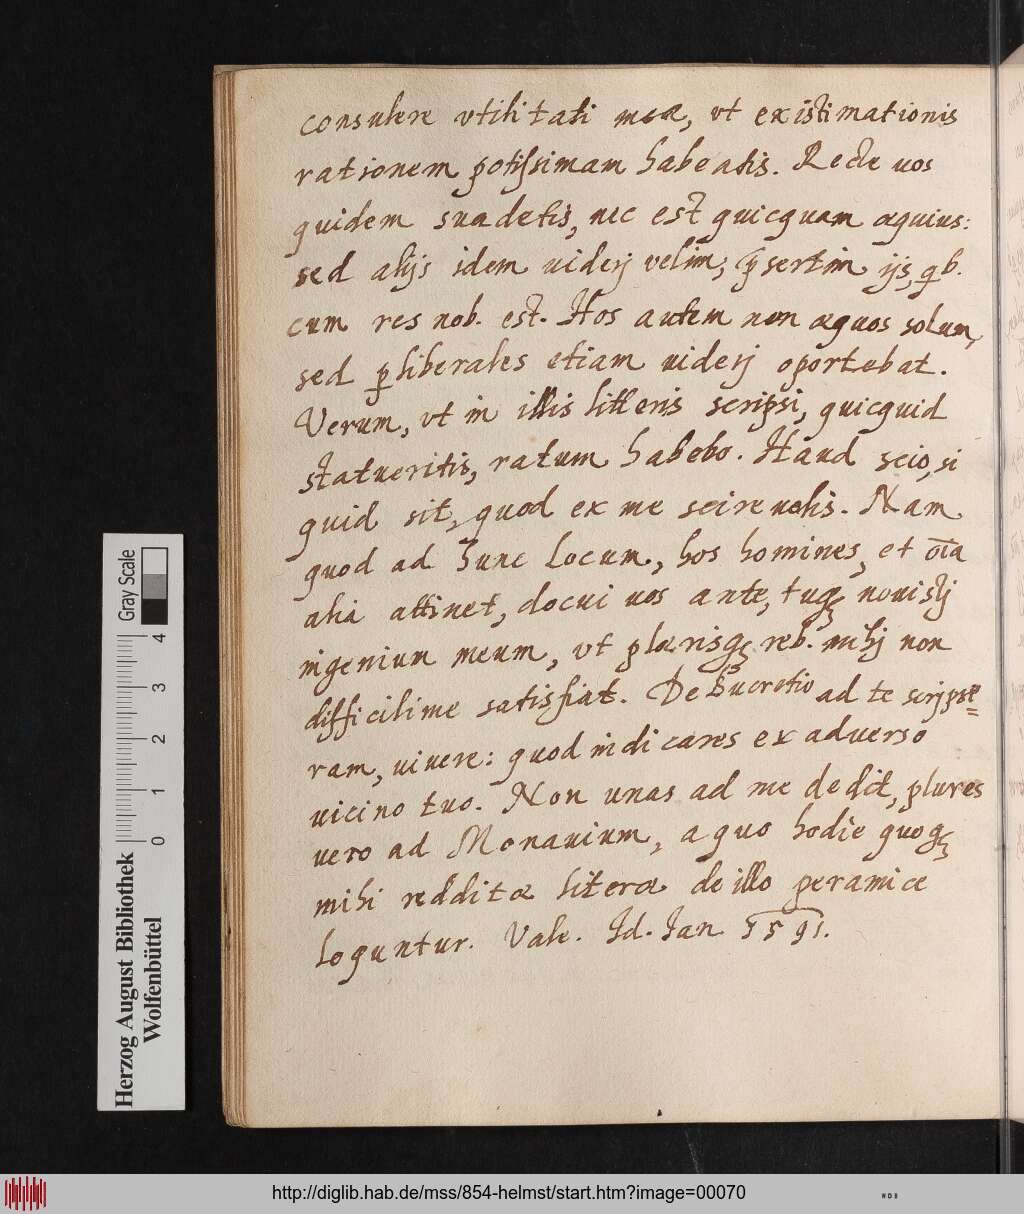 consulere vtilitati meæ, vt existimationis
rationem potissimam habeatis. Recte uos
quidem suadetis, nec est quicquam æquius:
sed alijs idem uiderj velim, p̄sertim ijs, qb.
cum res nob. est. Hos autem non æquos solum,
sed ꝑliberales etiam uiderj oportebat.
Verum, vt in illis litteris scripsi, quicquid
statueritis, ratum habebo. Haud scio, si
quid sit, quod ex me scire uelis. Nam
quod ad hunc locum, hos homines, et oīa
alia attinet, docui uos ante, tuqꝫ nouistj
ingenium meum, vt plærisqꝫ reb. mihj non
difficilime satisfiat. De Lucretio ad te scripse=
ram, uiuere: quod indicares ex aduerso
uicino tuo. Non unas ad me dedit, plures
uero ad Monauium, a quo hodie quoqꝫ
mihi redditæ literæ de illo peramice
loquntur. Vale. Id. Jan 1591.
Gray Scale
4
3
2
1
0
Herzog August Bibliothek
Wolfenbüttel
http://diglib.hab.de/mss/854-helmst/start.htm?image=00070